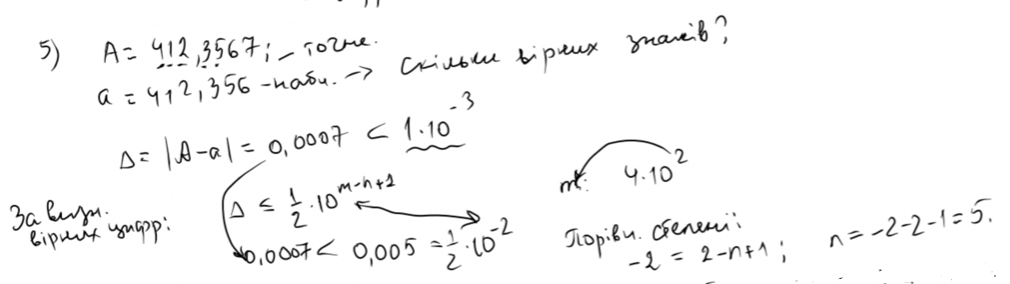 5) A = 412,3567; – точне.
a = 412,356 – набл. → Скільки вірних знаків?
Δ = |A-a| = 0,0007 < 1·10^-3
За визн. вірних цифр:
Δ ≤ 1/2 · 10^m-n+1
m: 4·10^2
0,0007 < 0,005 = 1/2 · 10^-2
Порівн. степені:
-2 = 2-n+1; n = -2-2-1 = 5.